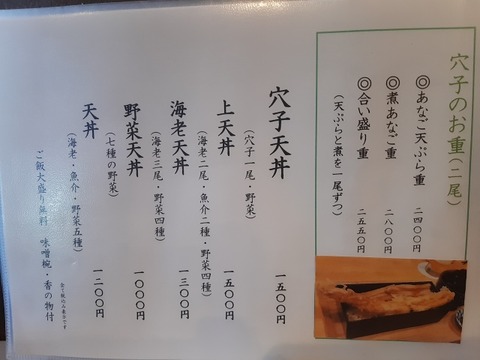 穴子のお重(二尾)
◎あなご天ぷら重 二四〇〇円
◎煮あなご重 二八〇〇円
◎合い盛り重 二五五〇円
(天ぷらと煮を一尾ずつ)
穴子天丼 一五〇〇円
(穴子一尾・野菜)
上天丼 一五〇〇円
(海老二尾・魚介二種・野菜四種)
海老天丼 一三〇〇円
(海老三尾・野菜四種)
野菜天丼 一〇〇〇円
(七種の野菜)
天丼 一二〇〇円
(海老・魚介・野菜五種)
ご飯大盛り無料 味噌椀・香の物付
全て税込み表示です